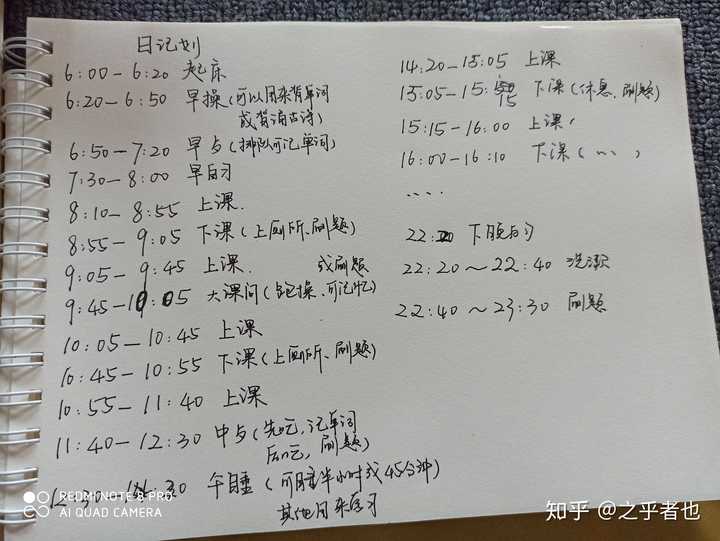 日记划
6:00-6:20 起床
6:20-6:50 早操(可以用来背单词
或背诵古诗)
6:50-7:20 早与(排队可记单词)
7:30-8:00 早自习
8:10-8:55 上课.
8:55-9:05 下课(上厕所、刷题)
9:05-9:45 上课.
9:45-10:05 大课间(跑操、可记忆)
或刷题
10:05-10:45 上课
10:45-10:55 下课(上厕所、刷题)
10:55-11:40 上课
11:40-12:30 中与(先吃,记单词
后吃,刷题)
12:30 :30 午睡(可睡半小时或45分钟)
其他用来学习
14:20-15:05 上课
15:05-15:15 下课(休息、刷题)
15:15-16:00 上课
16:00-16:10 下课(、、、)
....
22:20 下晚自习
22:20~22:40 洗漱
22:40~23:30 刷题
REDMI NOTE 8 PRO
AI QUAD CAMERA
知乎 @之乎者也